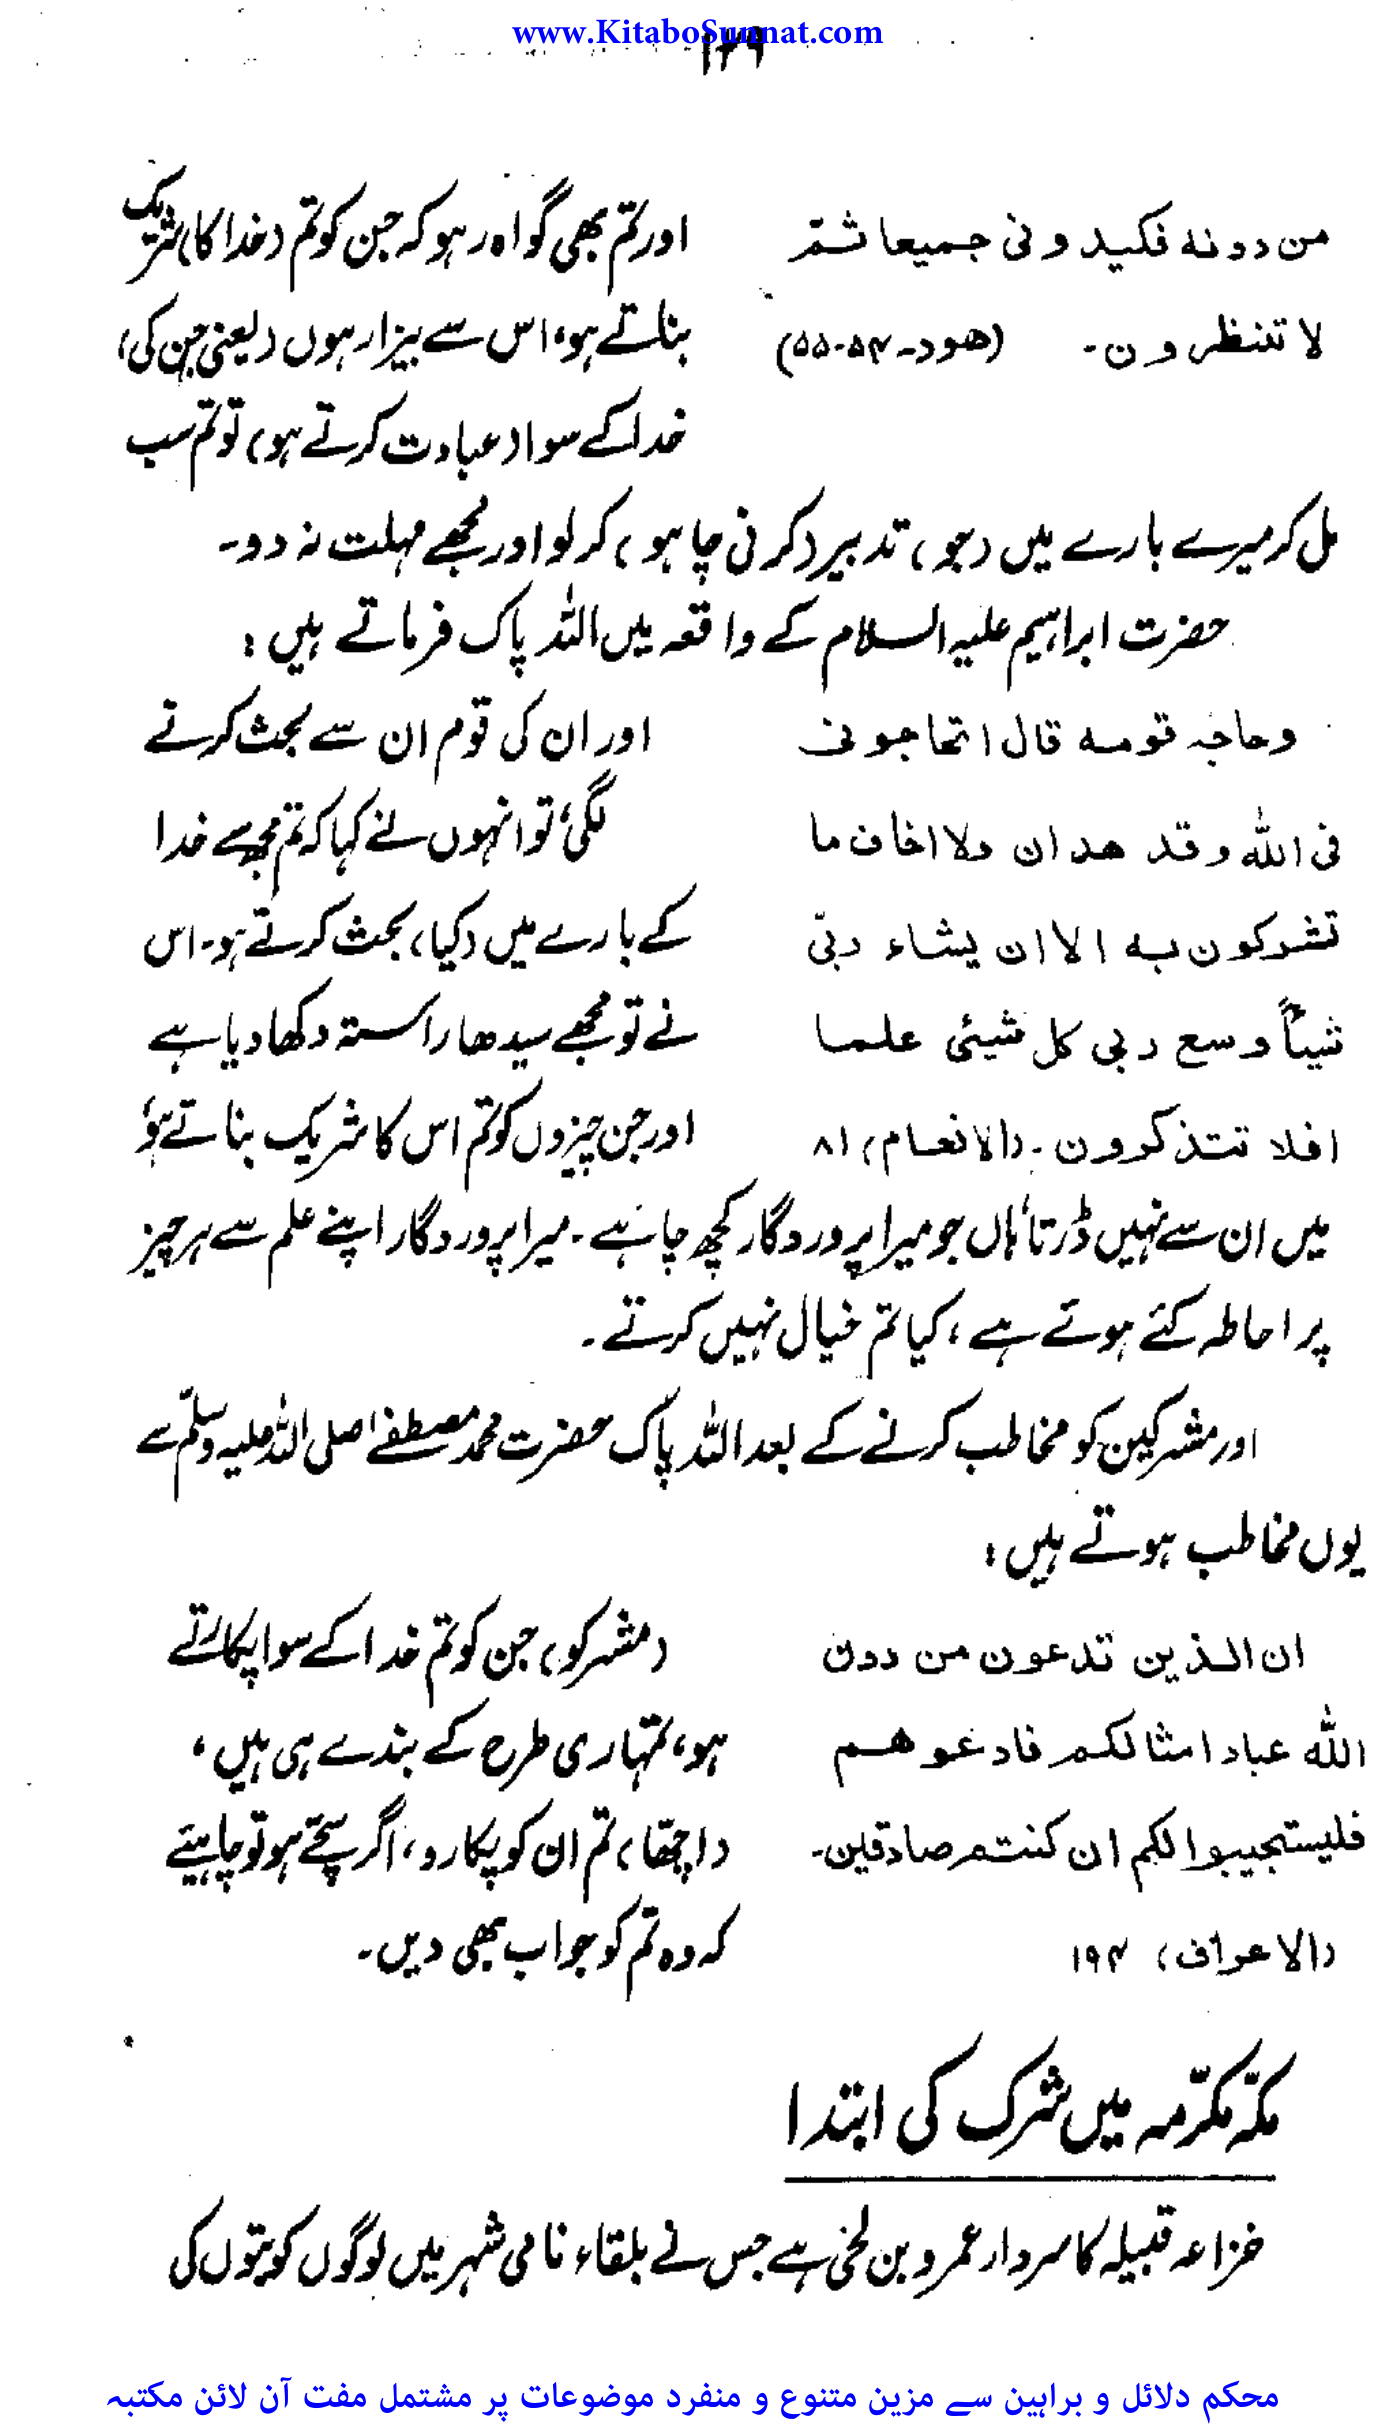 www.KitaboSunnat.com
۱۲۹
من دونه فكيدونى جميعا ثم
لا تنظرون۔ (هود۔ ۵۴-۵۵)
اور تم بھی گواہ رہو کہ جن کو تم (خدا کا) شریک
بناتے ہو، اس سے بیزار ہوں (یعنی جن کی)
خدا کے سوا (عبادت کرتے ہو) تو تم سب
مل کر میرے بارے میں (جو) تدبیر (کرنی چاہو) کر لو اور مجھے مہلت نہ دو۔
حضرت ابراہیم علیہ السلام کے واقعہ میں اللہ پاک فرماتے ہیں :
وحاجہ قومه قال اتحاجونى
فى الله وقد هدان ولا اخاف ما
تشركون به الا ان يشاء ربّى
شيئاً وسع ربى كل شيئى علما
افلا تتذكرون۔ (الانعام) ۸۱
اور ان کی قوم ان سے بحث کرنے
لگی، تو انہوں نے کہا کہ تم مجھ سے خدا
کے بارے میں (کیا) بحث کرتے ہو۔ اس
نے تو مجھے سیدھا راستہ دکھا دیا ہے
اور جن چیزوں کو تم اس کا شریک بناتے ہو،
میں ان سے نہیں ڈرتا، ہاں جو میرا پروردگار کچھ چاہے۔ میرا پروردگار اپنے علم سے ہر چیز
پر احاطہ کئے ہوئے ہے، کیا تم خیال نہیں کرتے۔
اور مشرکین کو مخاطب کرنے کے بعد اللہ پاک حضرت محمد مصطفےٰ صلی اللہ علیہ وسلّم سے
یوں مخاطب ہوتے ہیں :
ان الذين تدعون من دون
الله عباد امثالكم فادعوهم
فليستجيبوا لكم ان كنتم صادقين۔
(الاعراف) ۱۹۴
(مشرکو) جن کو تم خدا کے سوا پکارتے
ہو، تمہاری طرح کے بندے ہی ہیں،
(اچھّا) تم ان کو پکارو، اگر سچّے ہو تو چاہیئے
کہ وہ تم کو جواب بھی دیں۔
مکّہ مکرّمہ میں شرک کی ابتدا
خزاعہ قبیلہ کا سردار عمرو بن لحی ہے جس نے بلقاء نامی شہر میں لوگوں کو بتوں کی
محکم دلائل و براہین سے مزین متنوع و منفرد موضوعات پر مشتمل مفت آن لائن مکتبہ